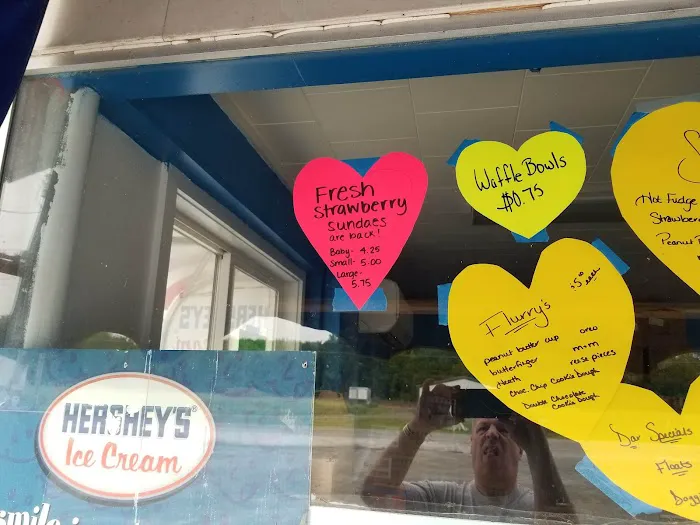 Fresh
Strawberry
Sundaes
are back!
Baby- 4.25
Small- 5.00
Large-
5.75
Waffle Bowls
$0.75
Hot Fudge
Strawberr
Peanut
Flurry's
.50
peanut butter cup oreo
butterfinger m+m
Heath reese pieces
Choc. Chip Cookie Dough
Double Chocolate
Cookie Dough
Bar Specials
Floats
HERSHEY'S
Ice Cream
smile